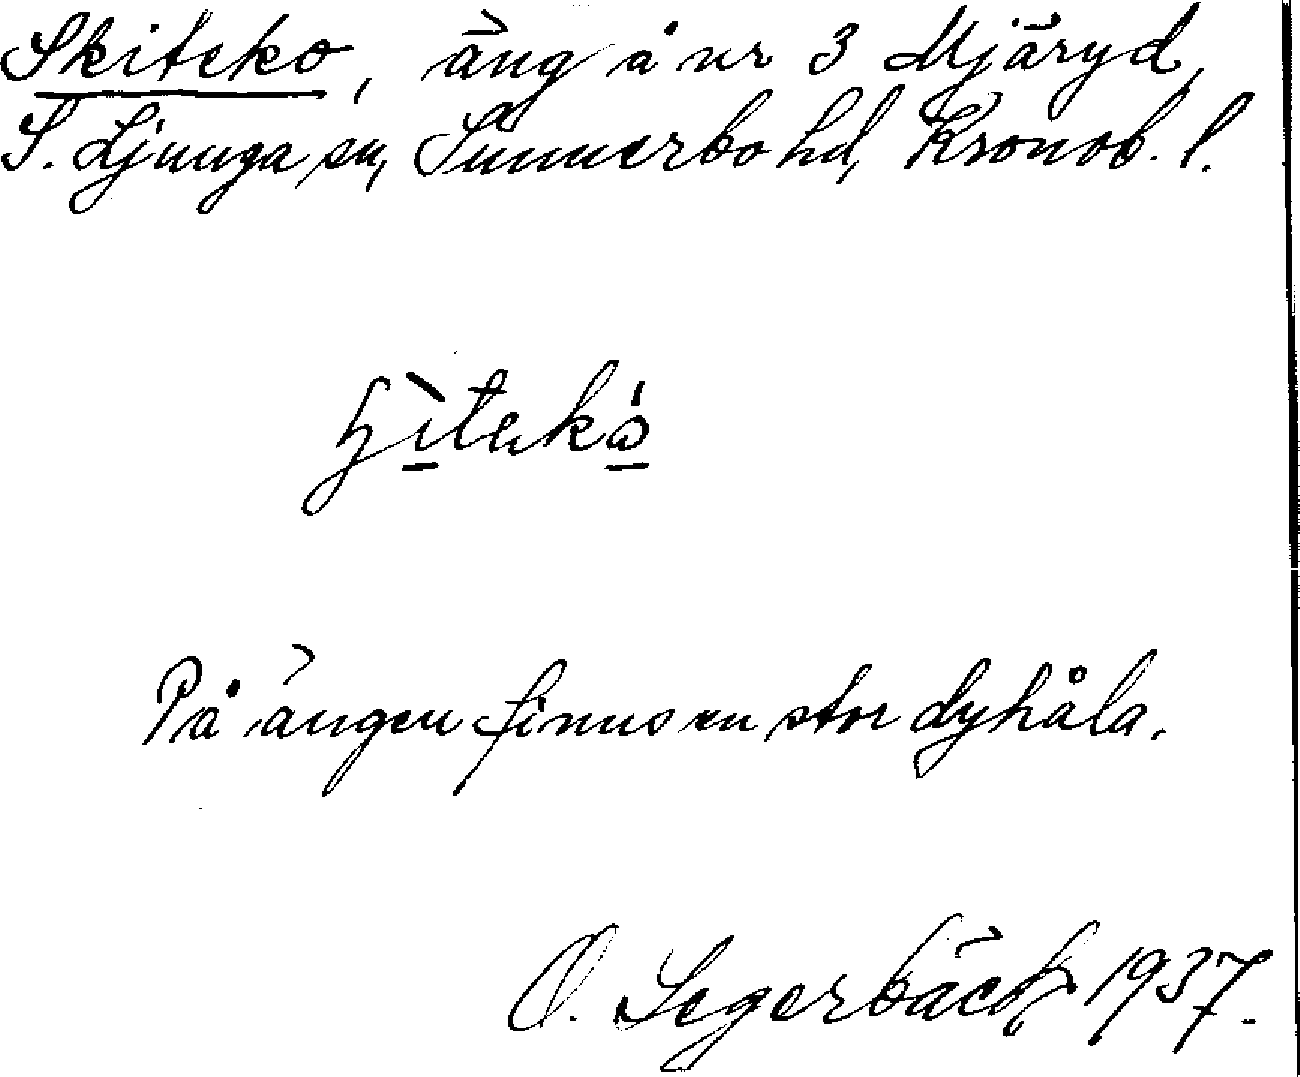 Skiteko, äng å nr 3 Mjäryd,
S. Ljunga sn, Sunnerbo hd, Kronob. l.
På ängen finns en stor dyhåla.
O. Segerbäck 1937.